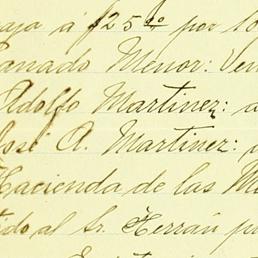 baja á $25.00 por 10
Ganado Menor: Ven
Adolfo Martinez: a
José A. Martinez:
Hacienda de las M
al Sr. Herrán p